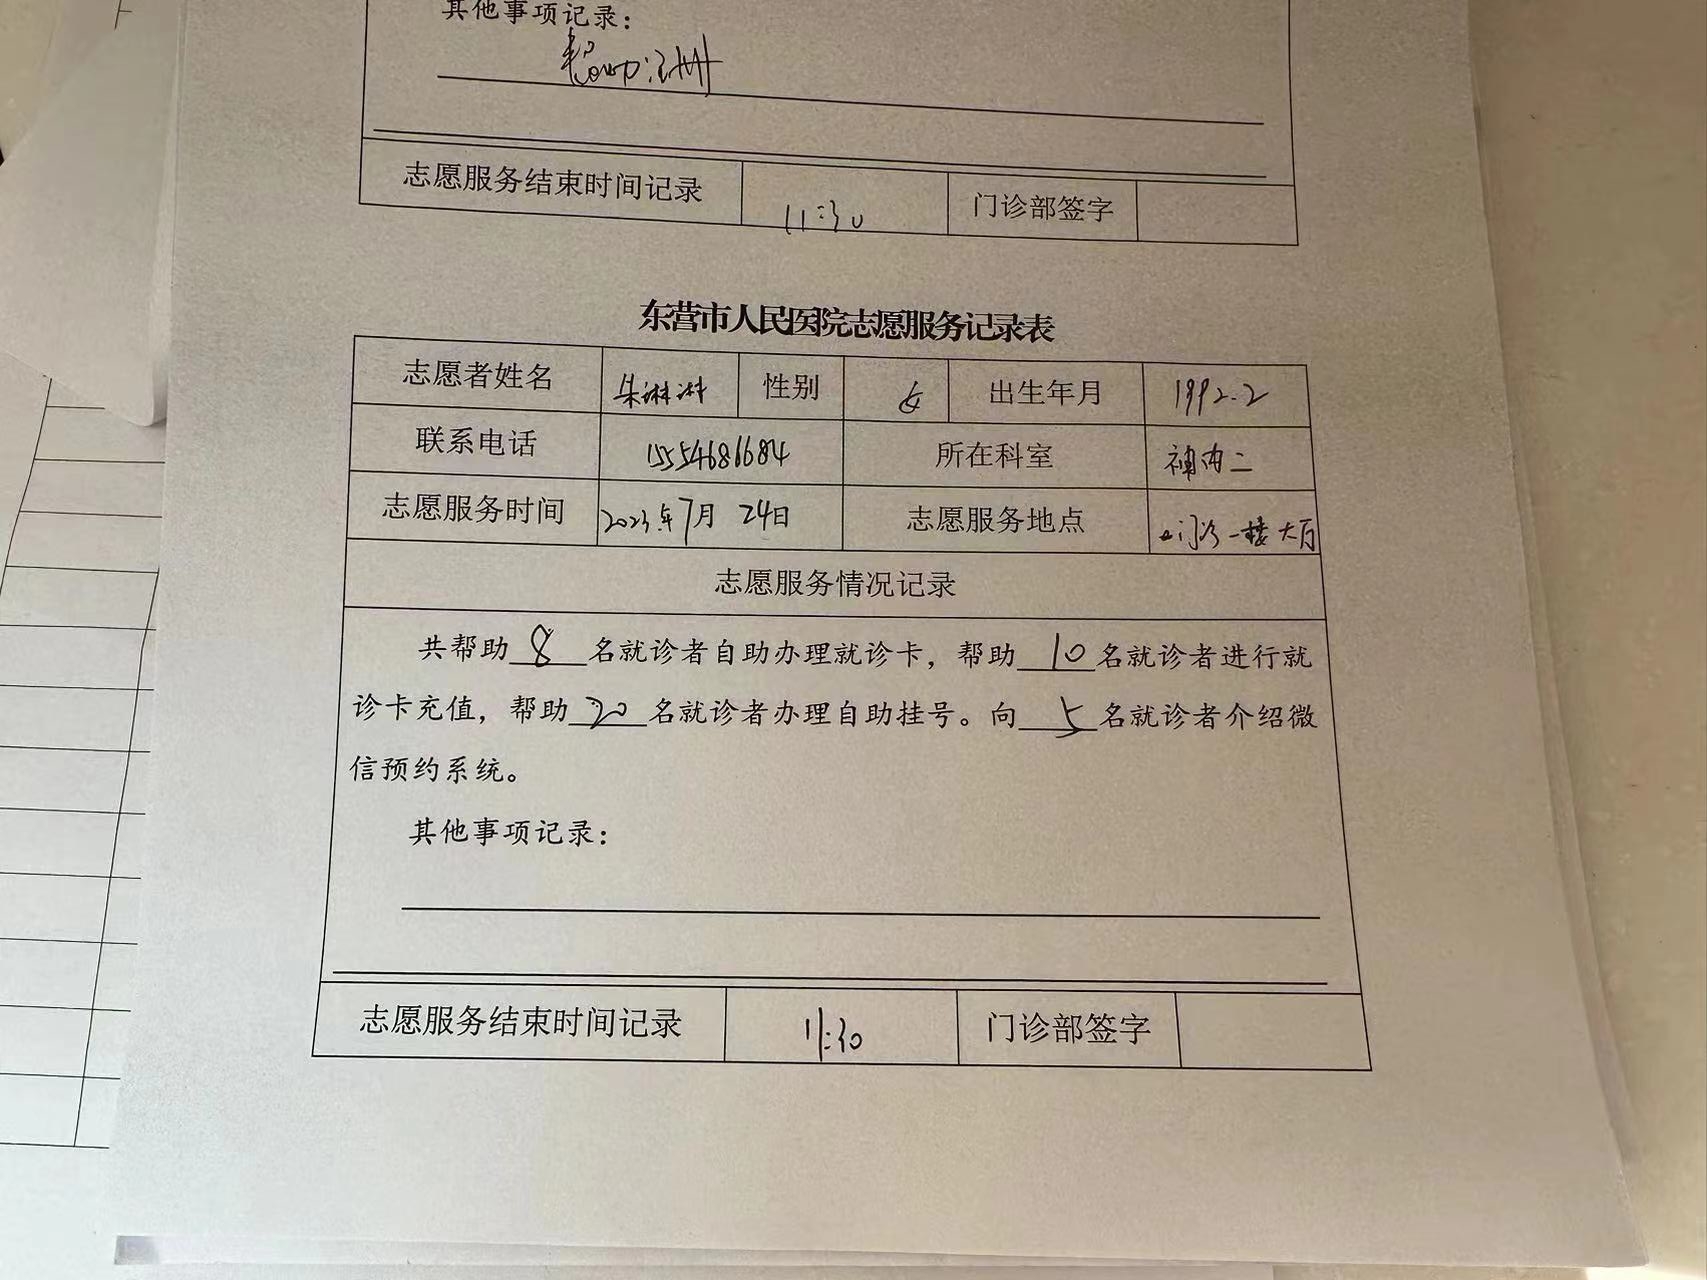 其他事项记录：
志愿服务结束时间记录 11:30 门诊部签字
东营市人民医院志愿服务记录表
志愿者姓名 朱琳琳 性别 女 出生年月 1992.2
联系电话 15554686684 所在科室 神内二
志愿服务时间 2023年7月 24日 志愿服务地点 门诊一楼大厅
志愿服务情况记录
共帮助8名就诊者自助办理就诊卡，帮助10名就诊者进行就
诊卡充值，帮助20名就诊者办理自助挂号。向5名就诊者介绍微
信预约系统。
其他事项记录：
志愿服务结束时间记录 11:30 门诊部签字